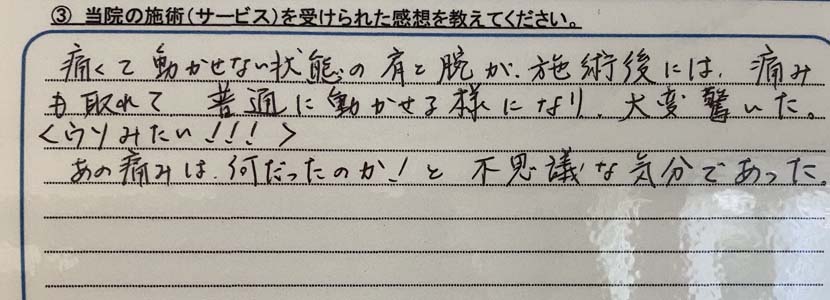 ③ 当院の施術(サービス)を受けられた感想を教えてください。
痛くて動かせない状態の肩と腕が、施術後には、痛み
も取れて、普通に動かせる様になり、大変驚いた。
<ウソみたい!!!>
あの痛みは、何だったのか!と不思議な気分であった。